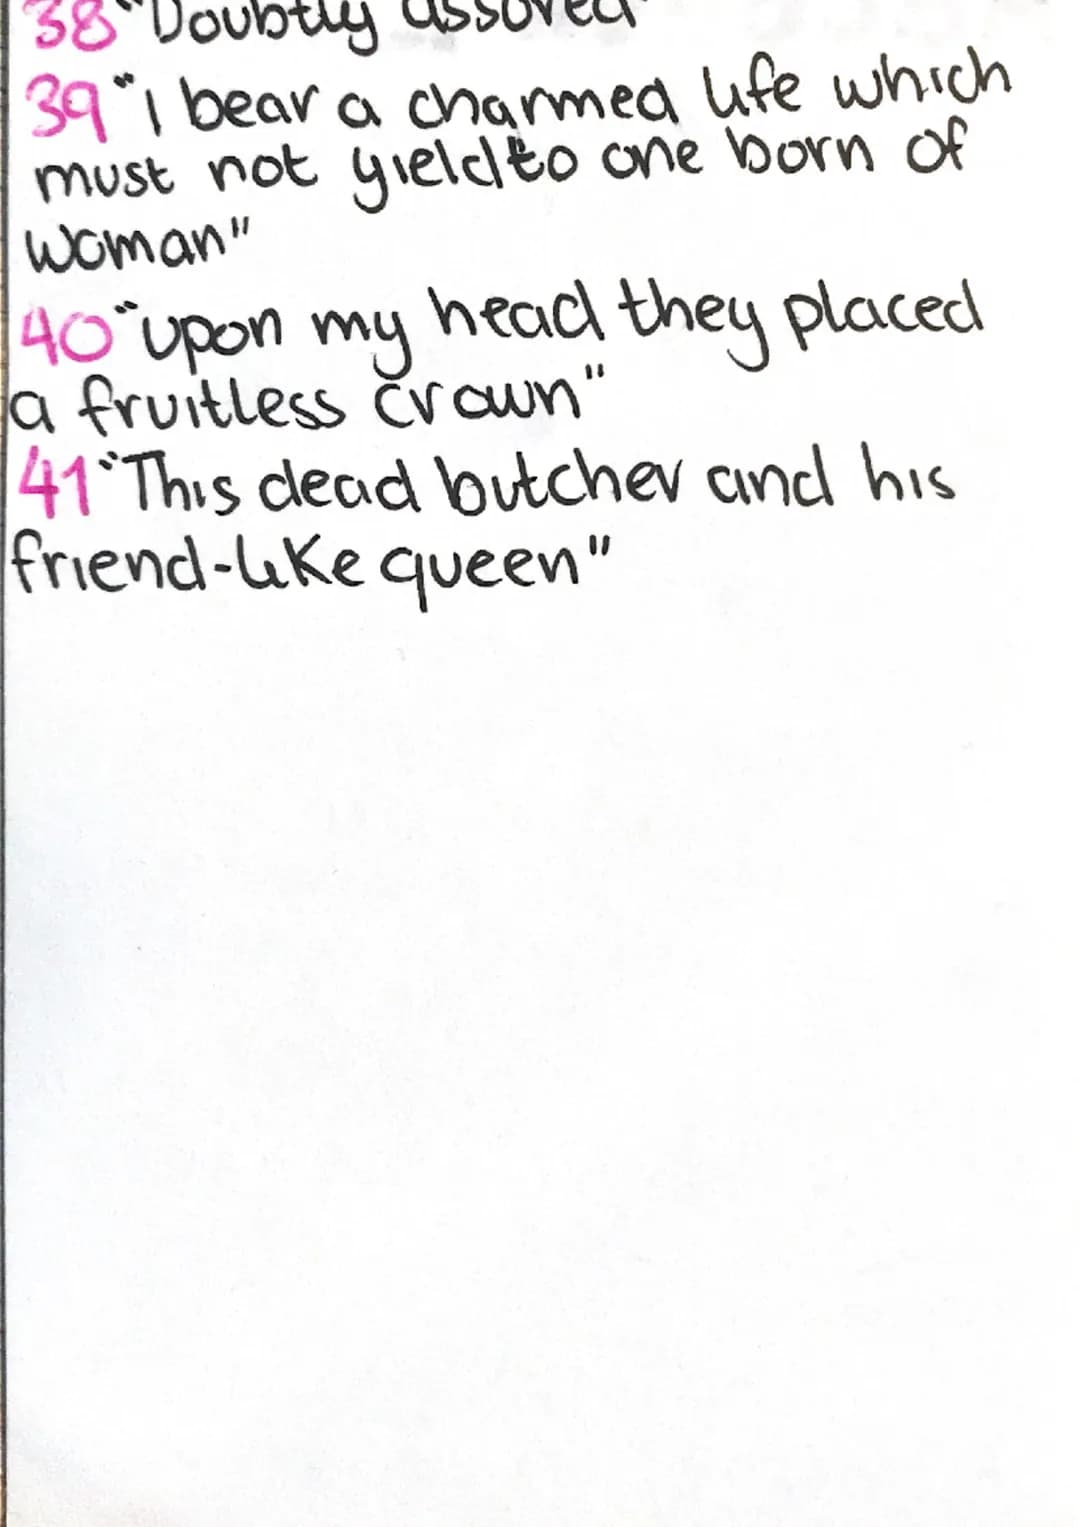 38 "Doubtly assured"
39 "I bear a charmed life which
must not yield to one born of
woman"
40 "upon my head they placed
a fruitless crown"
41 "This dead butcher and his
friend-like queen"